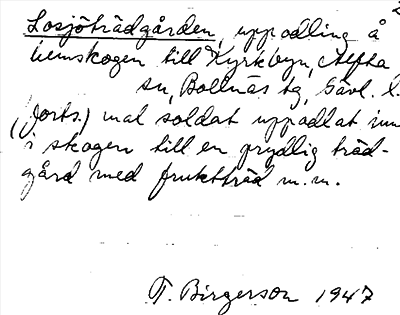 Losjöträdgården, uppodling å
hemskogen till Kyrkbyn, Alfta
sn, Bollnäs tg, Gävl. l.
(forts.) mal soldat uppodlat inne
i skogen till en prydlig träd-
gård med fruktträd m.m.
T. Birgerson 1947